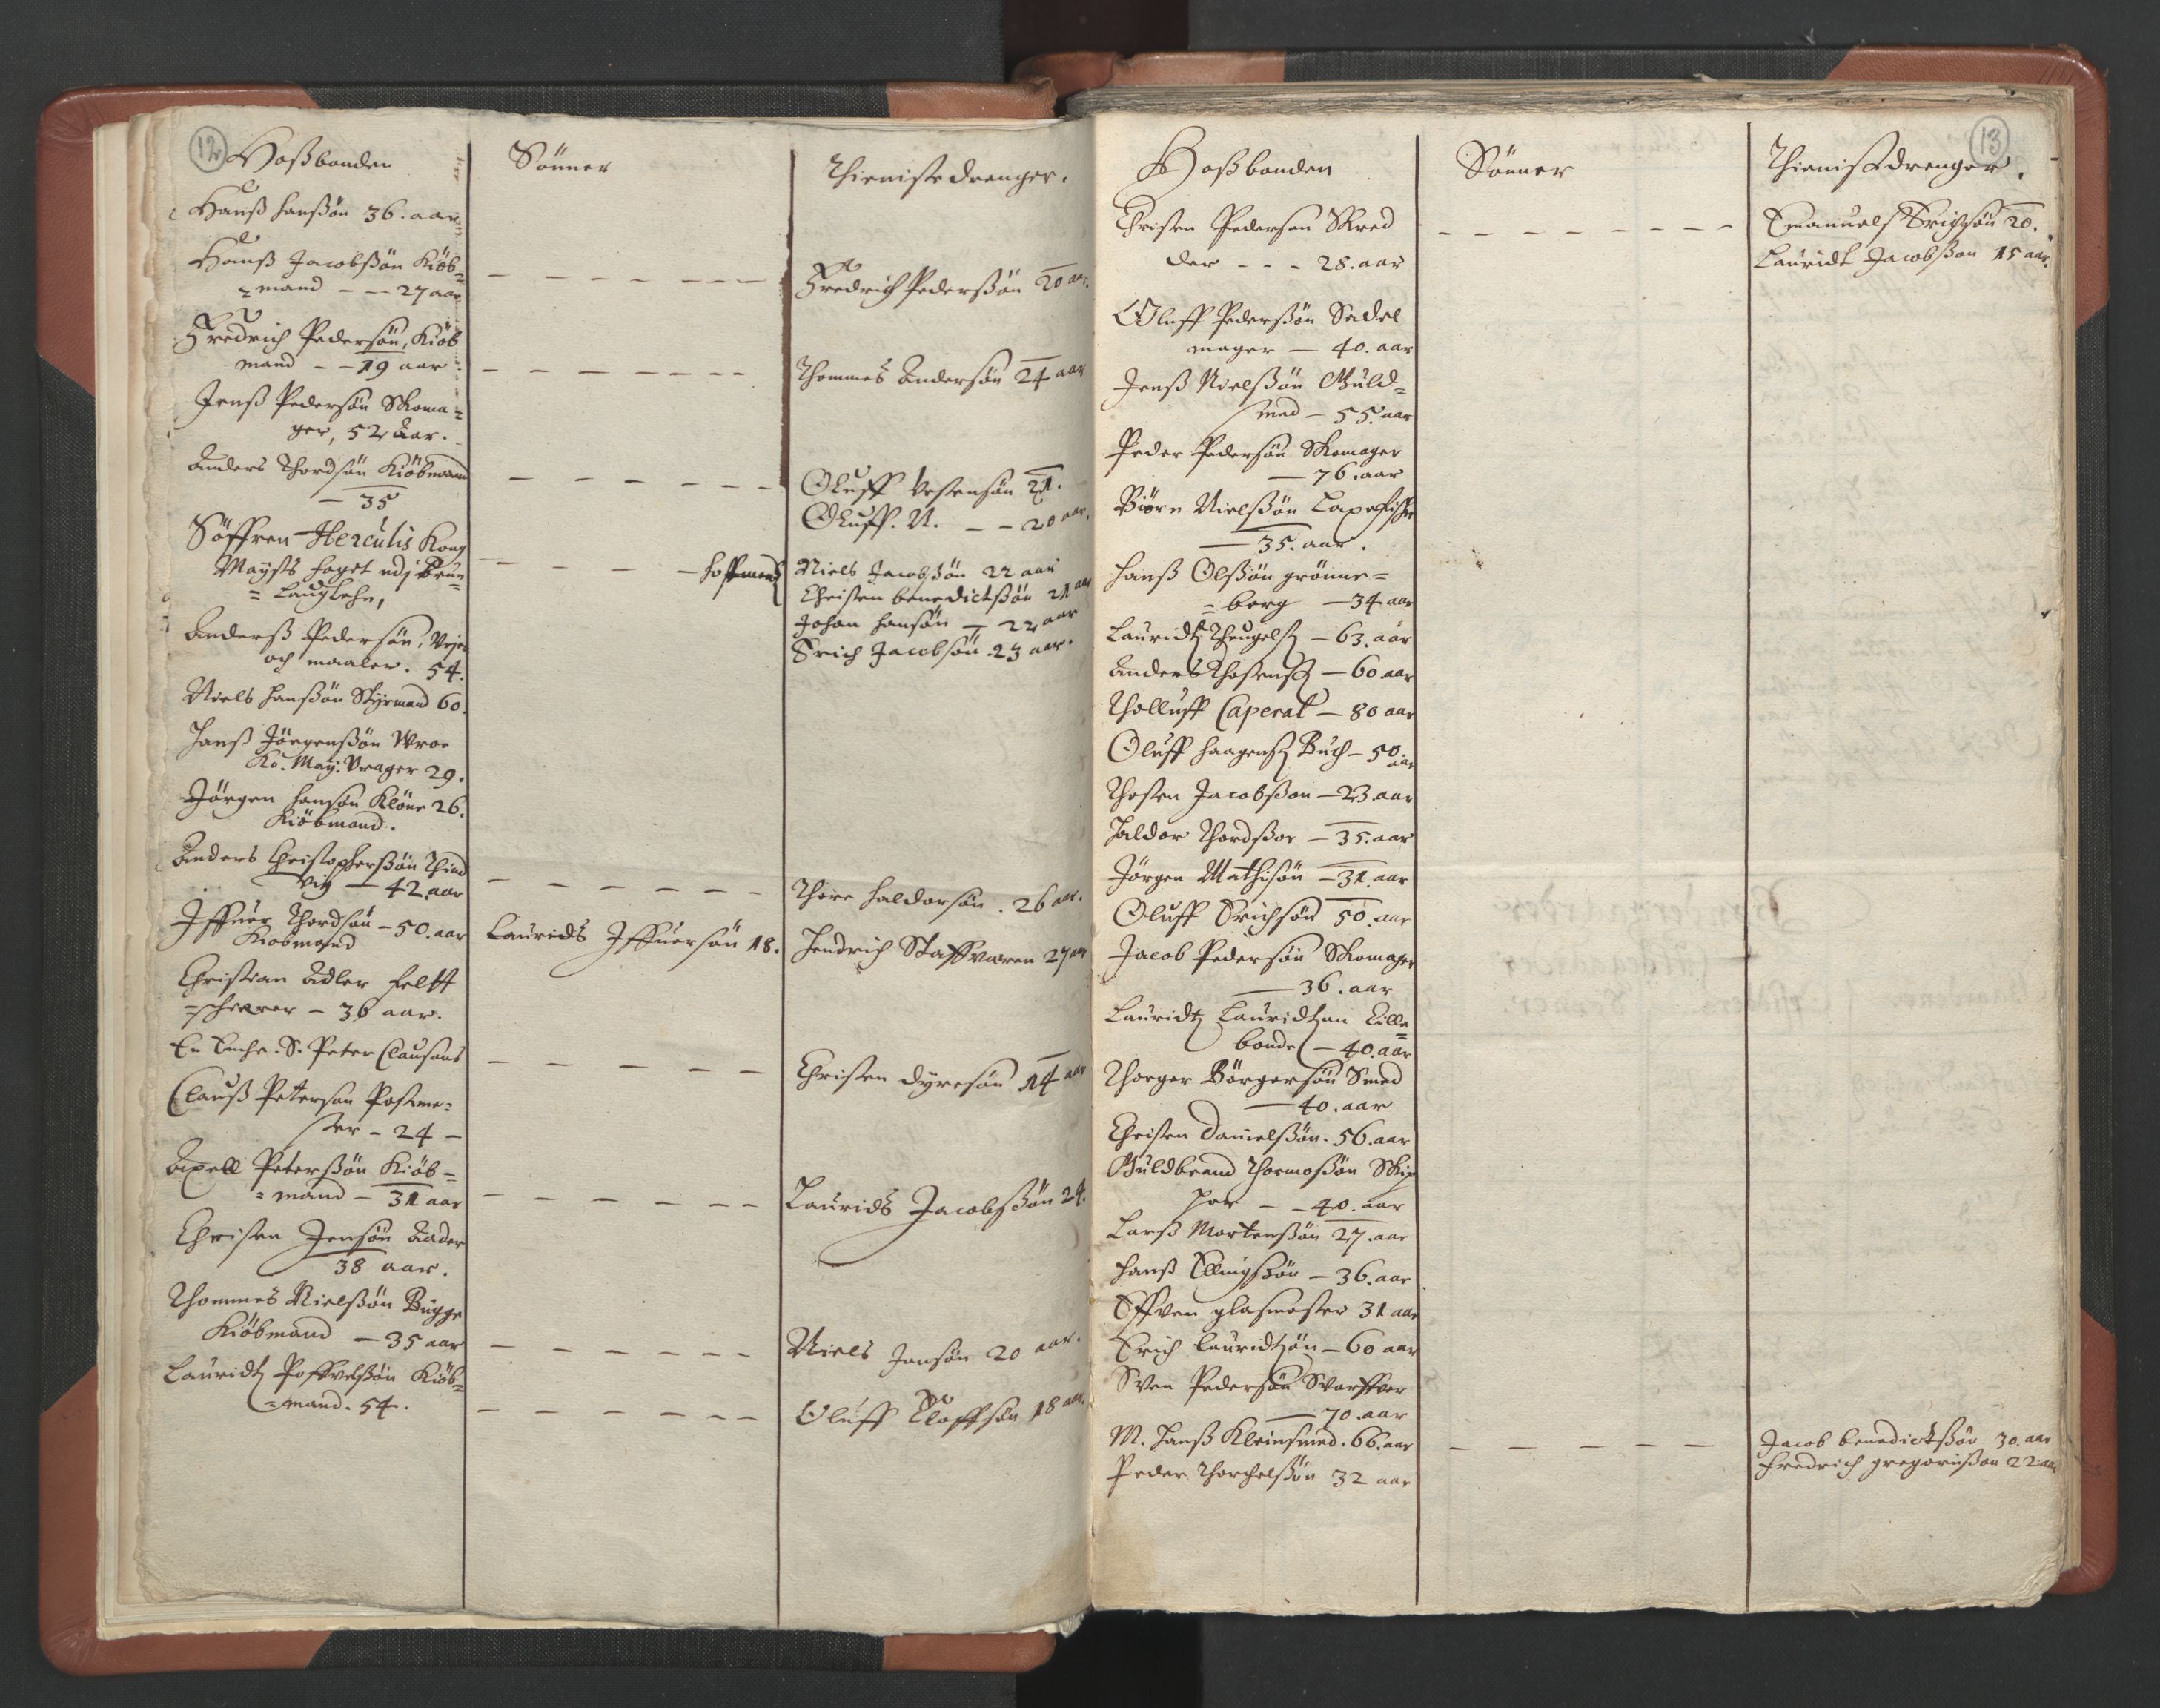 12
Hoßbonden
Hanß hanßøn 36. aar
Hanß Jacobßøn Kiøb=
=mand - - 27 aar
Fredrich Pedersøn, Kiøb
mand - - 19 aar
Jenß Pedersøn Skoma=
ger, 52 aar.
Anders Thordsøn Kiøbmand
- 35
Søffren Herculis Kong
Maysts foget udj Brun=
= lauglehn,
Anderß Pedersøn, Vejer
och maaler. 54.
Niels hanßøn Styrmand 60.
Hanß Jörgenßøn Wroe
Ko. May: Vrager 29.
Jørgen hansøn Kløne 26.
Kiøbmand.
Anders Christopherßøn Thind
vig - 42 aar
Iffuer Thordsøn - 50. aar
Kiøbmand
Christian Adler feltt
=scherer - 36 aar.
En Enche. S. Peter Clausøns
Clauß Petersøn Postme=
ster - 24 -
Axell Peterßøn Kiøb=
= mand - 31 aar
Christen Jensøn Aader
38 aar.
Thommes Nielßøn Bugge
Kiøbmand - 35 aar
Lauridtz Poffvelßøn Kiøb=
= mand. 54.
Sønner
hoffmend
Laurids Iffuersøn 18.
Thienistedrenger.
Fredrich Pederßøn 20 aar.
Thommes Andersøn 24 aar
Oluff Vestensøn 21.
Oluff. N. - - 20 aar.
Niels Jacobßøn 22 aar
Christen benedictßøn 21 aar
Johan hansøn - 22 aar
Erich Jacobsøn 23 aar.
Thore haldorsøn. 26 aar.
Hendrich Staffværn 27 aar
Christen dyresøn 14 aar
Laurids Jacobßøn 24.
Niels Jensøn 20 aar.
Oluff Eloffsøn 18 aar.
13
Hoßbonden
Christen Pedersøn Skred
der - - - 28. aar
Oluff Pederßøn Sadel
mager - 40. aar
Jenß Nielßøn Guld=
smed - 55. aar
Peder Pedersøn Skomager
- 76. aar
Biørn Nielßøn
- 35. aar.
Hanß Olßøn grønne=
= berg - 34 aar
Lauridtz Thrugelsß - 63. aar
Anders Thostensß - 60 aar
Tholluff Caperal - 80 aar
Oluff haagensß Buch - 50. aar
Thosten Jacobßøn - 23 aar
Haldor Thordßøn - 35. aar
Jørgen Mathisøn - 31. aar
Oluff Erichsøn 50. aar
Jacob Pedersøn Skomager
- 36. aar
Lauridtz Lauridtzøn Lille=
bonde - 40. aar
Thorger Børgersøn Smed
- 40. aar
Christen Danielßøn. 56. aar
Guldbrand Thormosøn Skip
per - - 40. aar
Larß Mortenßøn 27. aar
Hanß Ellingßøn - 36. aar
Effuen glasmester 31 aar
Erich Lauridtzøn - 60 aar
Swen Pedersøn Svarffver
- 70. aar
M. Hanß Kleinsmed. 66. aar
Peder Thorchelßøn 32 aar
Sønner
Thienistedrenger.
Emanuels Erichsøn 20.
Lauridt Jacobßøn 15 aar.
Jacob benedictßøn 30. aar
Fredrich gregorußøn 22 aar